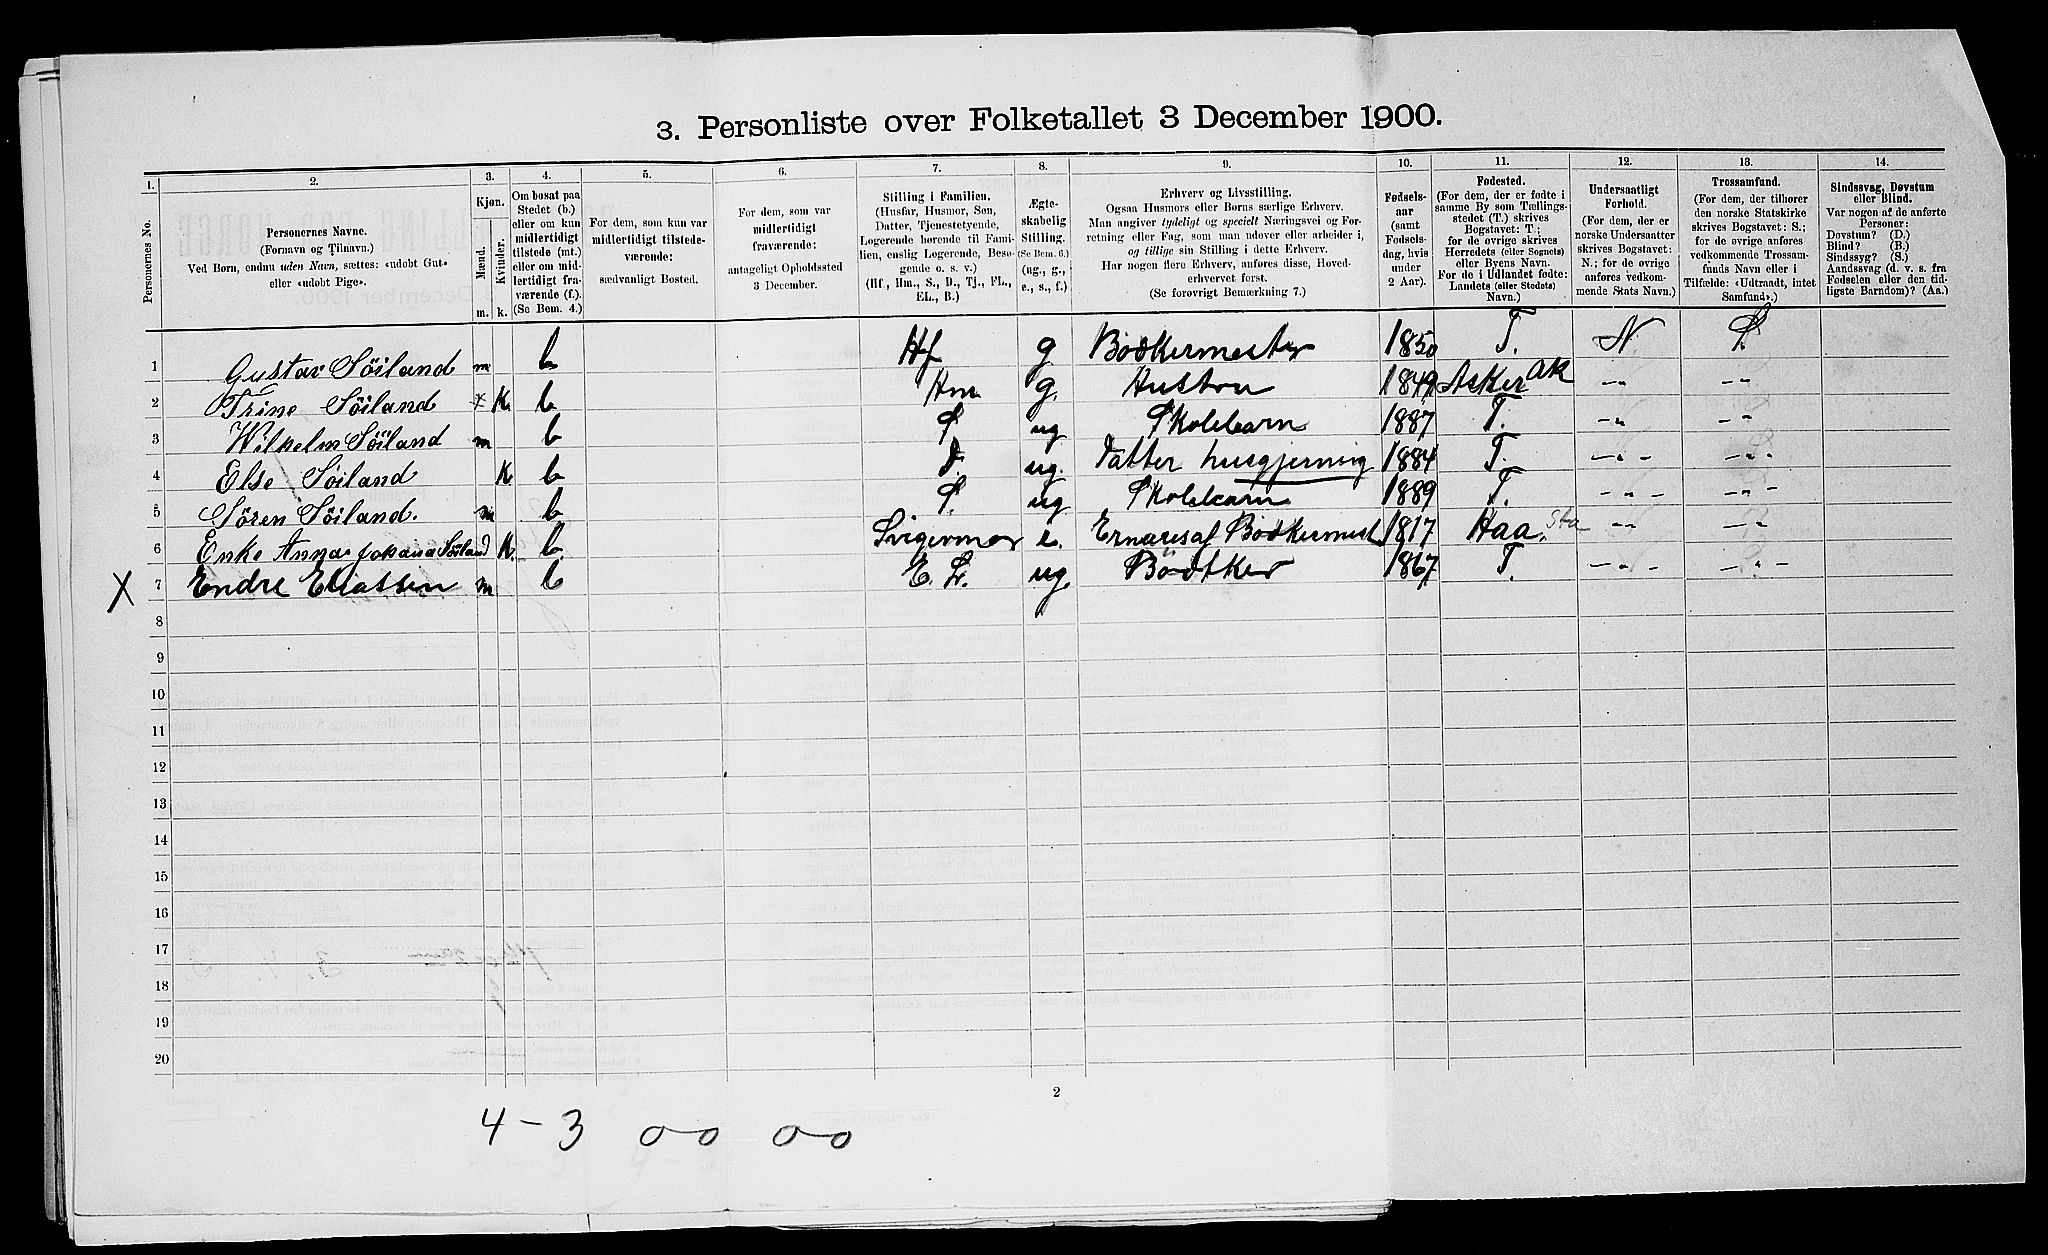 3. Personliste over Folketallet 3 December 1900.
1. 2. 3. 4. 5. 6. 7. 8. 9. 10. 11. 12. 13. 14.
Personernes No.
Personernes Navne.
(Fornavn og Tilnavn.)
Ved Børn, endnu uden Navn, sættes: «udobt Gut»
eller «udobt Pige».
Kjøn.
Mænd. Kvinder.
m. k.
Om bosat paa
Stedet (b.)
eller om kun
midlertidigt
tilstede (mt.)
eller om mid-
lertidigt fra-
værende (f.).
(Se Bem. 4.)
For dem, som kun var
midlertidigt tilstede-
værende:
sædvanligt Bosted.
For dem, som var
midlertidigt
fraværende:
antageligt Opholdssted
3 December.
Stilling i Familien.
(Husfar, Husmor, Søn,
Datter, Tjenestetyende,
Logerende hørende til Fami-
lien, enslig Logerende, Besø-
gende o. s. v.)
(Hf., Hm., S., D., Tj., FL.,
EL., B.)
Ægte-
skabelig
Stilling.
(Se Bem. 6.)
(ug., g.,
e., s., f.)
Erhverv og Livsstilling.
Ogsaa Husmors eller Børns særlige Erhverv.
Man angiver tydeligt og specielt Næringsvei og For-
retning eller Fag, som man udøver eller arbeider i,
og tillige sin Stilling i dette Erhverv.
Har nogen flere Erhverv, anføres disse, Hoved-
erhvervet først.
(Se forøvrigt Bemærkning 7.)
Fødsels-
aar
(samt
Fødsels-
dag, hvis
under
2 Aar).
Fødested.
(For dem, der er fødte i
samme By som Tællings-
stedet (T.) skrives
Bogstavet: T.;
for de øvrige skrives
Herredets (eller Sognets)
eller Byens Navn.
For de i Udlandet fødte:
Landets (eller Stedets)
Navn.)
Undersaatligt
Forhold.
(For dem, der er
norske Undersaatter
skrives Bogstavet:
N.; for de øvrige
anføres vedkom-
mende Stats Navn.)
Trossamfund.
(For dem, der tilhører
den norske Statskirke
skrives Bogstavet: S.;
for de øvrige anføres
vedkommende Trossam-
funds Navn eller i
Tilfælde: «Udtraadt, intet
Samfund».)
Sindssvag, Døvstum
eller Blind.
Var nogen af de anførte
Personer:
Døvstum? (D.)
Blind? (B.)
Sindssyg? (S.)
Aandssvag (d. v. s. fra
Fødselen eller den tid-
ligste Barndom)? (Aa.)
1 Gustav Söiland m b Hf g Bödkermester 1850 T. N. S.
2 Trine Söiland x K b Hm g. Hustru 1849 Asker Ak -"- -"-
3 Wilhelm Söiland m b S ug Skolebarn 1887 T. -"- -"-
4 Else Söiland K b d. ug. Datter husgjerning 1884 T. -"- -"-
5 Sören Söiland. m b S. ug Skolebarn 1889 T. -"- -"-
6 Enke Anna Johana Söiland K. b. Svigermor e. Ernæres af Bödkermest 1817 Haa. Sta -"- -"-
X 7 Endre Eliassen m b E. L. ug. Bödtker 1867 T. -"- -"-
8
9
10
11
12
13
14
15
16
17
18
19
20
2
4-3 0-0 0-0